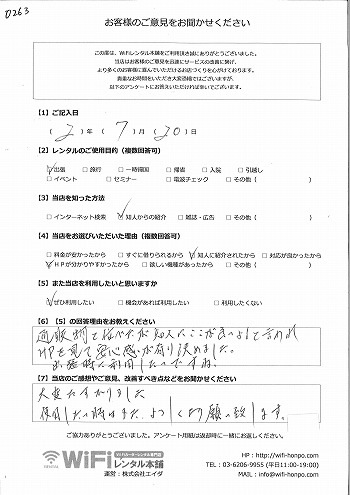 0263
お客様のご意見をお聞かせください
この度は、WiFiレンタル本舗をご利用頂き誠にありがとうございました。
当店はお客様のご意見を迅速にサービスの改善に繋げ、
より多くのお客様に喜んでいただけるお店づくりを心がけております。
貴重なお時間をいただき大変恐縮ではございますが、
以下のアンケートにお答えいただければ幸いでございます。
【1】ご記入日
( 2 ) 年 ( 7 ) 月 ( 20 ) 日
【2】レンタルのご使用目的（複数回答可）
☑出張 □旅行 □一時帰国 □帰省 □入院 □引越し
□イベント □セミナー □電波チェック □その他（ ）
【3】当店を知った方法
□インターネット検索 ☑知人からの紹介 □雑誌・広告 □その他（ ）
【4】当店をお選びいただいた理由（複数回答可）
□料金が安かったから □すぐに借りられるから ☑知人に紹介されたから □対応が良かったから
☑HPが分かりやすかったから □欲しい機種があったから □その他（ ）
【5】また当店を利用したいと思いますか
☑ぜひ利用したい □機会があれば利用したい □利用したくない
【6】【5】の回答理由をお教えください
知人にここが良いよと言われ
HPを見て安心感が有り決めました。
出張時に利用したいですね。
【7】当店のご感想やご意見、改善すべき点などをお聞かせください
大変たすかりました
又、よろしくお願い致します。
ご協力ありがとうございました。アンケート用紙は返却時に一緒にお返しください。
WiFiルーターレンタル専門店
WiFi
RENTAL
レンタル本舗
運営：株式会社エイダ
HP：http://wifi-honpo.com
TEL：03-6206-9955 (平日11:00-19:00)
MAIL：info@wifi-honpo.com